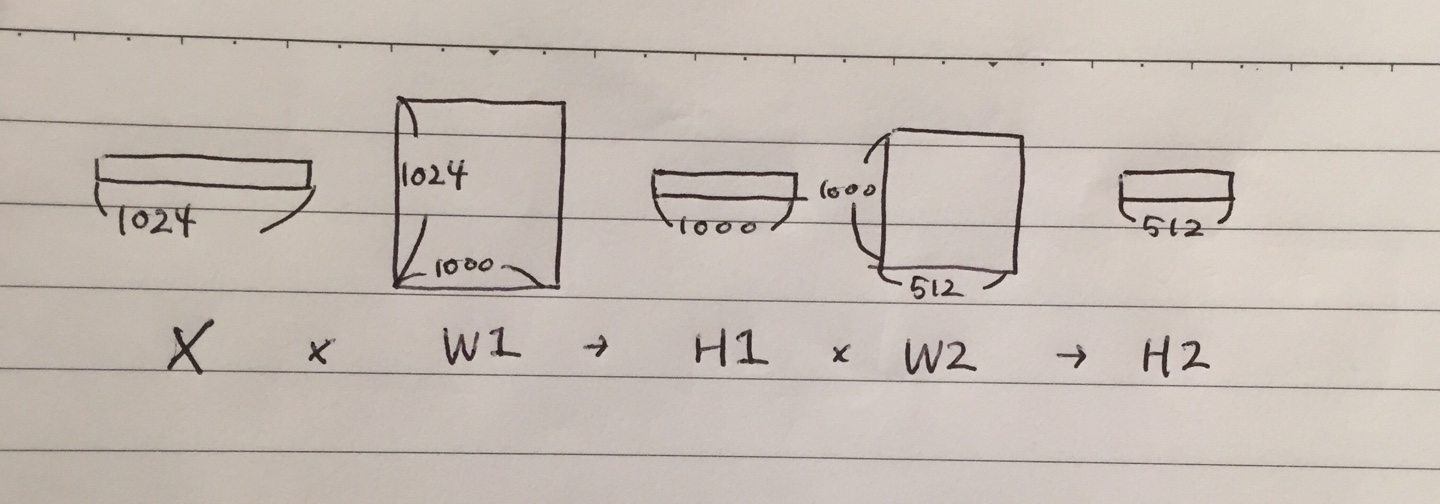 1024 1024 1000 1000 1000 512 512
X × W1 → H1 × W2 → H2